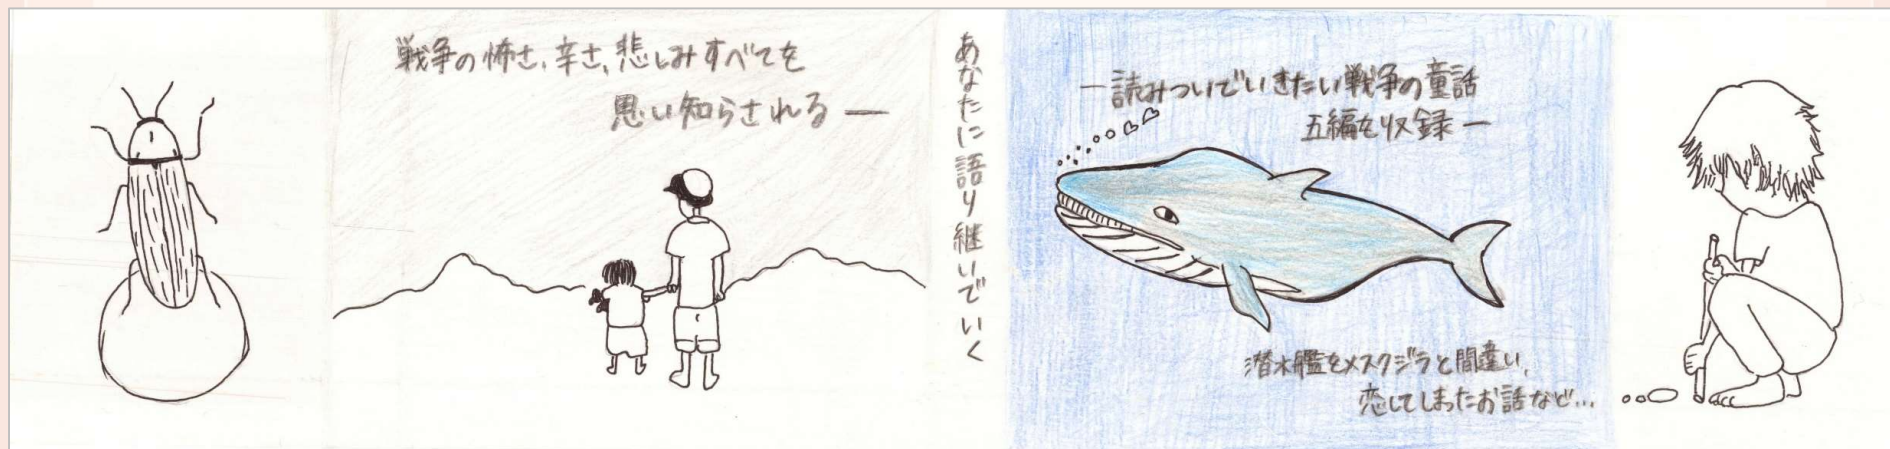 戦争の怖さ、辛さ、悲しみすべてを
思い知らされる―
あなたに語り継いでいく
―読みついでいきたい戦争の童話
五編を収録―
潜水艦をメスクジラと間違い、
恋してしまったお話など…